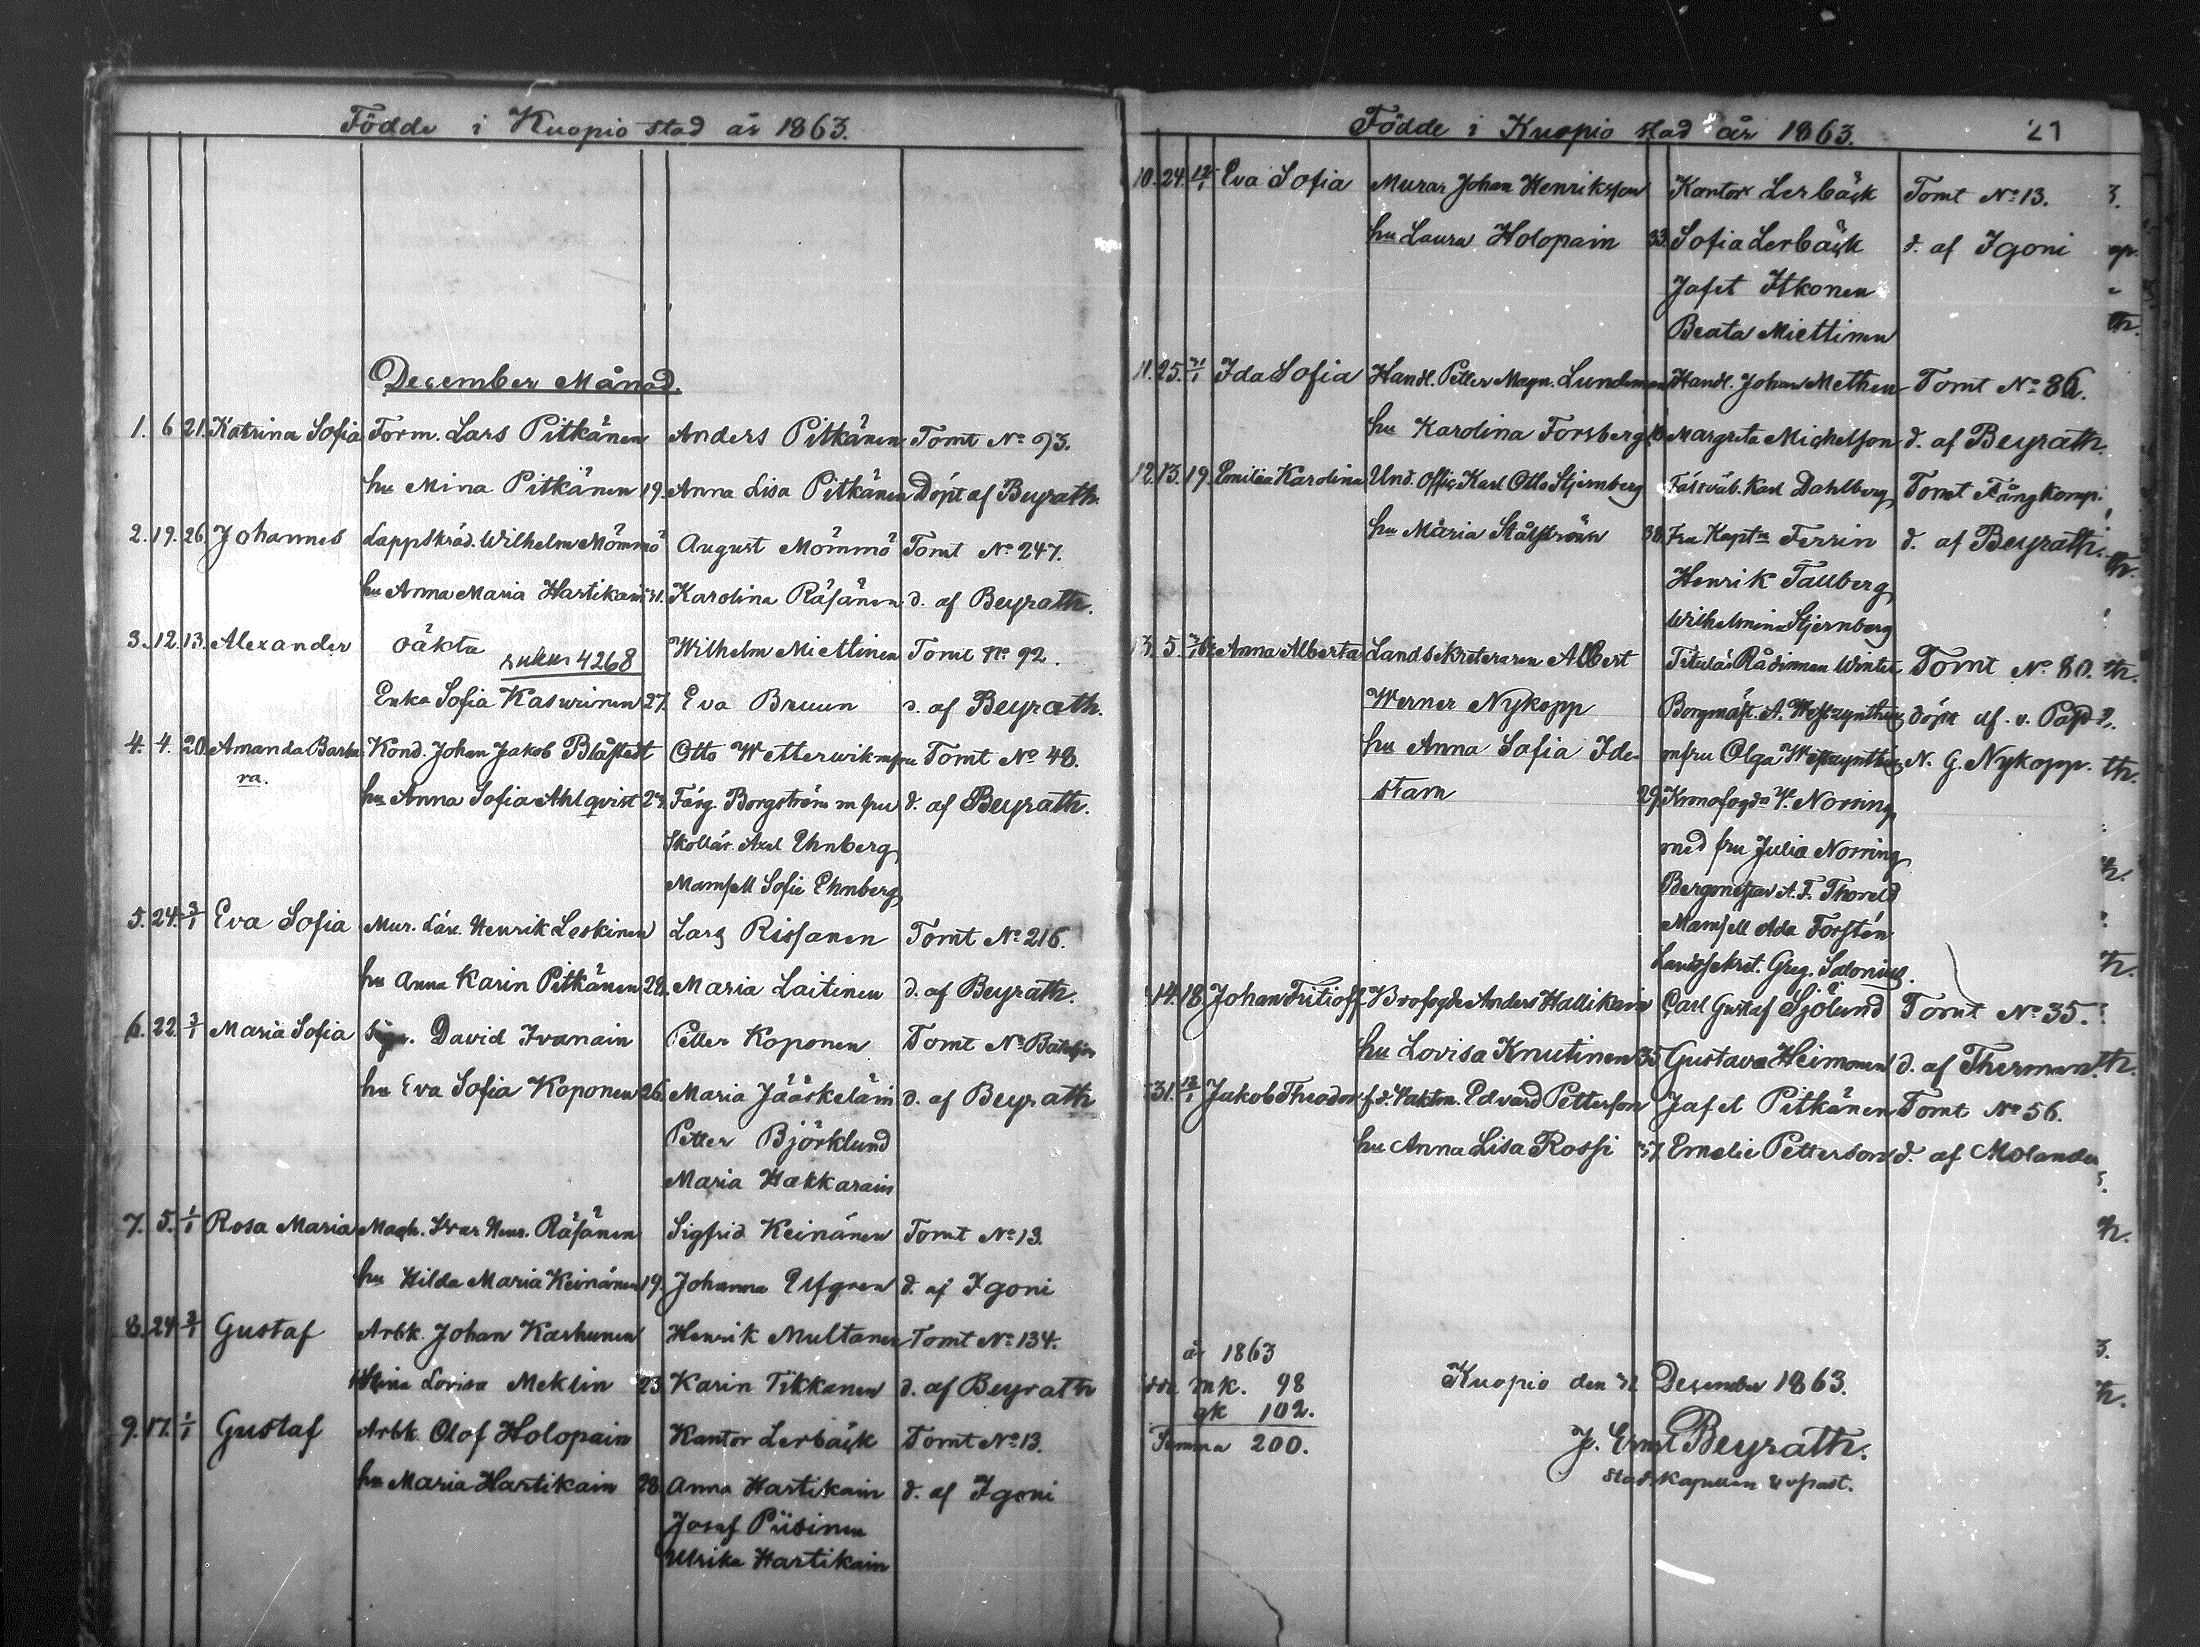 Födde i Kuopio stad år 1863.
December Månad.
1. 6 21. Katrina Sofia Form. Lars Pitkänen Anders Pitkänen Tomt No 93.
hu Mina Pitkänen 19. Anna Lisa Pitkänen Döpt af Beyrath.
2. 19. 26. Johannes Lappskräd. Wilhelm Mömmö August Mömmö Tomt No 247.
hu Anna Maria Hartikain 31. Karolina Räsänen d. af Beyrath.
3. 12. 13. Alexander oäkta Wilhelm Miettinen Tomt No 92.
4268
Enka Sofia Kasurinen 27. Eva Bruun d. af Beyrath.
4. 4. 20. Amanda Barba Kond. Johan Jakob Blåfield Otto Wetterwik m fru Tomt No 48.
ra.
hu Anna Sofia Ahlqvist 29. Färg. Borgström m fru d. af Beyrath.
Skollär. Axel Ehnberg
Mamsell Sofie Ehnberg
5. 24. 3/1 Eva Sofia Mur. Lär. Henrik Leskinen Lars Rissanen Tomt No 216.
hu Anna Karin Pitkänen 29. Maria Laitinen d. af Beyrath.
6. 22. 3/1 Maria Sofia David Ivanain Petter Koponen Tomt No
hu Eva Sofia Koponen 26. Maria Jääskeläin d. af Beyrath
Petter Björklund
Maria Hakkarain
7. 5. 1/1 Rosa Maria Magh. Ivar Henr. Räsänen Sigfrid Keinänen Tomt No 13.
hu Hilda Maria Keinänen 19. Johanna Elfgren d. af Igoni
8. 24 3/1 Gustaf Arbk. Johan Karhunen Henrik Multanen Tomt No 134.
Stina Lovisa Meklin 23. Karin Tikkanen d. af Beyrath
9. 17. 1/1 Gustaf Arbk. Olof Holopain Kantor Lerbäck Tomt No 13.
hu Maria Hartikain 28. Anna Hartikain d. af Igoni
Josef Piisinen
Ulrika Hartikain
Födde i Kuopio stad år 1863. 21
10. 24. 12/1 Eva Sofia Murar Johan Henriksson Kantor Lerbäck Tomt No 13.
hu Laura Holopain 33. Sofia Lerbäck d. af Igoni
Jafet Itkonen
Beata Miettinen
11. 25. Ida Sofia Handl. Petter Magn. Lundeman Handl. Johan Methen Tomt No 86.
hu Karolina Forsberg Margreta Michelson d. af Beyrath.
12. 13. 19. Emilia Karolina Und. Offic. Karl Otto Stjernberg Fältväb. Karl Dahlberg Tomt Fångkomp.
hu Maria Stålström 38. Fru Kapt. Ferrin d. af Beyrath.
Henrik Tallberg
Wilhelmina Stjernberg
13. 5. Anna Alberta Landsekreteraren Albert Titulär Rådman Winter Tomt No 80.
Werner Nykopp Borgmäst. A. Weszynthius döpt af v. Past.
hu Anna Sofia Ide- m fru Olga Weszynthius N. G. Nykopp.
stam 29. Kronofogden W. Norring
med fru Julia Norring
A. F. Thoreld
Mamsell Ada Forstén
Landssekret. Greg. Salonius
14. 18. Johan Fritioff Brofogde Anders Hallikain Carl Gustaf Sjölund Tomt No 35.
hu Lovisa Knutinen 35. Gustava Heimonen d. af Therman.
31. 12/1 Jakob Theodor f.d. Vaktm. Edvard Petterson Jafet Pitkänen Tomt No 56.
hu Anna Lisa Rossi 37. Emelie Petterson d. af Molander
år 1863
mk. 98
qk 102.
Summa 200.
Kuopio den 31 December 1863.
J. Ernst Beyrath.
stadskapellan